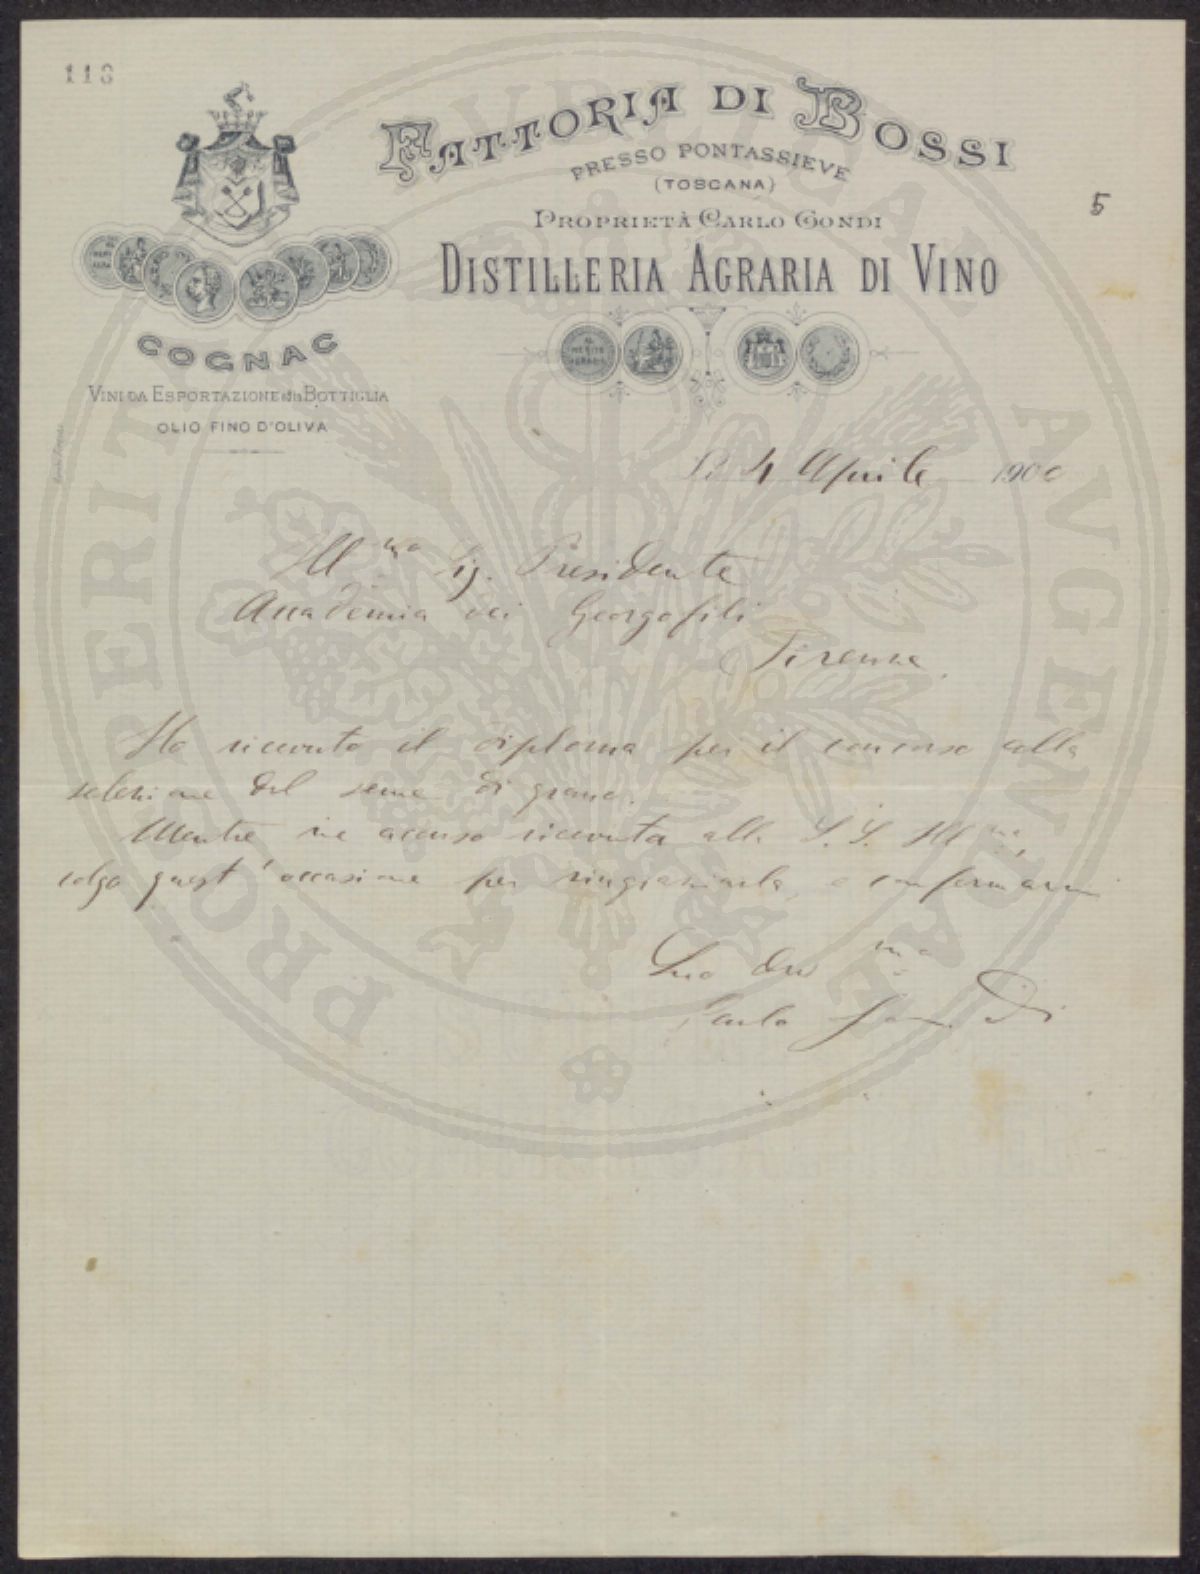 118
FATTORIA DI BOSSI
PRESSO PONTASSIEVE
(TOSCANA)
5
PROPRIETÀ CARLO GONDI
DISTILLERIA AGRARIA DI VINO
AL MERITO AGRARIO
COGNAC
VINI DA ESPORTAZIONE ed in BOTTIGLIA
OLIO FINO D'OLIVA
Li 4 Aprile 1900
Ill mo Sig. Presidente
Accademia dei Georgofili
Firenze
Ho ricevuto il diploma per il concorso alla
selezione del seme di grano.
Mentre ne accuso ricevuta alla S. S. Ill ma,
colgo quest'occasione per ringraziarla, e confermarmi
Suo dev mo
Carlo Gondi
PROSPERITATI PUBLICAE AVGENDAE